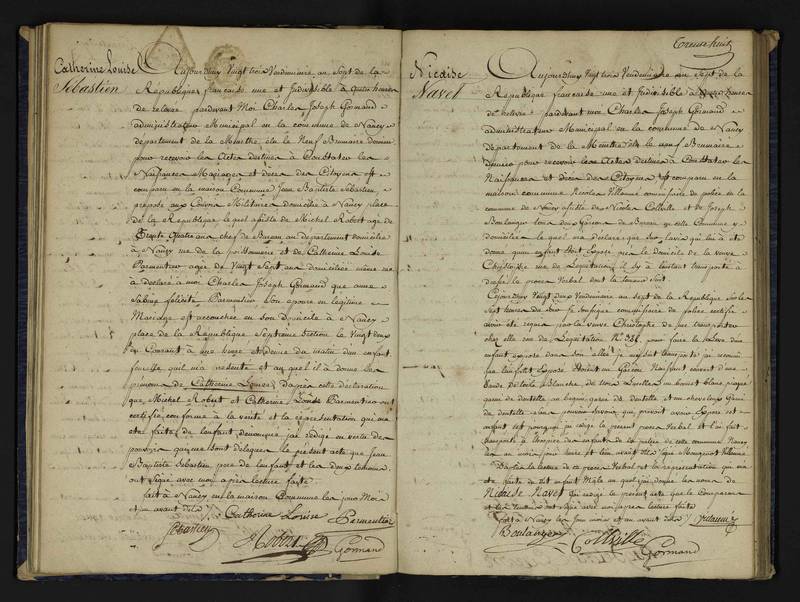 Catherine Louise
Sébastien
Aujourdhuy Vingt trois Vendemiaire an Sept de la
République française une et Indivisible à quatre heures
de relevée pardevant Moi Charles Joseph Gormand
administrateur Municipal en la commune de Nancy
département de la Meurthe élu le Neuf Brumaire dernier
pour recevoir les Actes destinés à Constater les
Naissances Mariages et décès des Citoyens est
comparu en la maison Commune Jean Baptiste Sébastien
préposé aux Convois Militaires domicilié à Nancy place
de la République lequel assisté de Michel Robert agé de
Trente quatre ans chef de Bureau au département domicilié
à Nancy rue de la poissonnerie et de Catherine Louise
Parmentier agée de Vingt Sept ans domiciliée même rue
a déclaré à moi Charles Joseph Gormand que anne
Parmentier Son épouse en légitime
Mariage est accouchée en son domicile à Nancy
place de la République Septieme Section le Vingt deux
du Courant à une heure et demie du matin d'un enfant
femelle qu'il m'a présenté et auquel il a donné les
prénoms de Catherine Louise, d'après cette déclaration
que Michel Robert et Catherine Louise Parmentier ont
certifié conforme à la vérité et la représentation qui m'a
été faite de l'enfant dénommé j'ai rédigé en vertu des
pouvoirs qui me sont délégués le présent acte que Jean
Baptiste Sébastien père de l'enfant et les deux témoins
ont Signé avec moi après lecture faite
fait à Nancy en la maison Commune les jour Mois
et an avant dits
Catherine Louise Parmentier
Sébastien
Robert
Gormand
Nicaise
Navet
Aujourdhuy Vingt trois Vendemiaire an Sept de la
République française une et indivisible à heures
de relevée pardevant moi Charles Joseph Gormand
administrateur Municipal en la commune de Nancy
département de la Meurthe élu le neuf Brumaire
dernier pour recevoir les Actes destinés à Constater les
Naissances et décès des Citoyens est comparu en la
maison commune Nicolas Villaume commissaire de police en la
commune de Nancy assisté de Nicolas Colville et de Joseph
Boulanger tous deux Garçons de Bureau en cette Commune y
domiciliés lequel m'a déclaré que sur l'avis qui lui a été
donné qu'un enfant était Exposé près le domicile de la veuve
Christophe rue de Législation il s'y à l'instant transporté a
dressé le procès Verbal dont la teneur Suit
Cejourdhuy Vingt deux Vendemiaire an sept de la République sur les
Sept heures du Soir Je Soussigné commissaire de police certifie
avoir été requis par la veuve Christophe de me transporter
chez elle rue de Législation N.° 381, pour faire la levée d'un
enfant exposé dans son allée je m'y suis transporté j'ai reconnu
que l'enfant Exposé étoit un Garçon Naissant couvert d'une
Bande de toile Blanche de un bonnet blanc piqué
garni de dentelle un beguin garni de dentelle et un garni
de dentelle sans pouvoir savoir qui pouvoit avoir Exposé cet
enfant c'est pourquoi j'ai rédigé le present procès Verbal et l'ai fait
transporter à l'hospice des enfants de la patrie de cette commune Nancy
les an mois jour heure et lieu avant dits Signé Villaume
D'après la lecture de ce procès Verbal et la représentation qui m'a
été faite du dit enfant Mâle auquel j'ai donné les noms de
Nicaise Navet J'ai rédigé le present acte que le Comparant
et les Temoins ont Signé avec moi après lecture faite
fait à Nancy les jour mois et an avant dits Villaume
Boulanger
Colville
Gormand